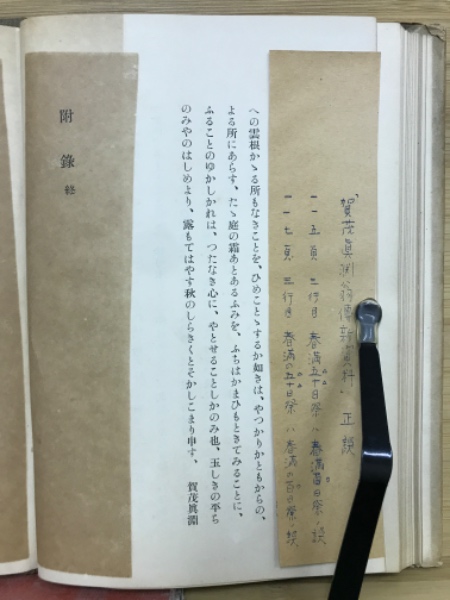 「賀茂眞渕翁傳新資料」正誤
一一五頁 三行目 春満五十日祭ハ春満百日祭ノ誤
一一七頁 三行目 春満の五十日祭ハ春満の百日祭ノ誤
への雲根かゝる所もなきことを、ひめことゝするか如きは、やつかりかともからの、
よる所にあらす、たゝ庭の霜あとあるふみを、ふちはかまひもときてみることに、
ふることのゆかしかれは、つたなき心に、やとせることしかのみ也、玉しきの平ら
のみやのはしめより、露もてはやす秋のしらきくとそかしこまり申す、 賀茂眞淵
附錄 終